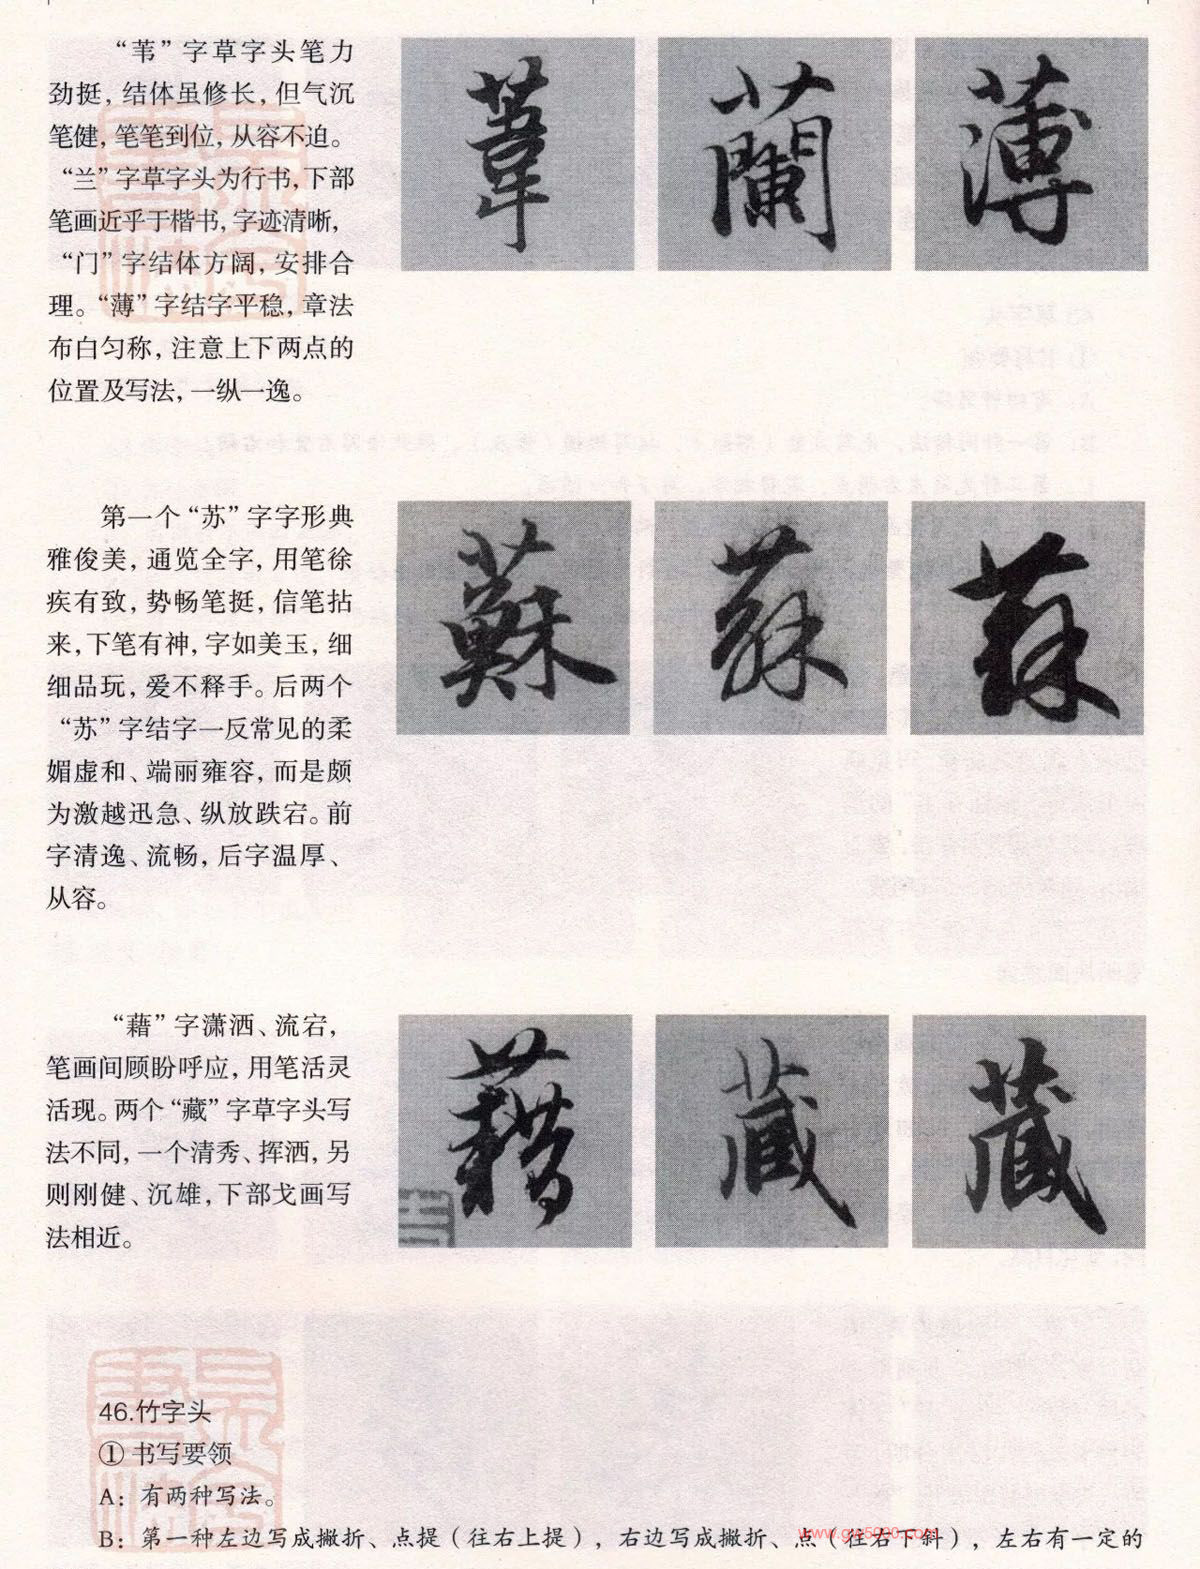 “苇”字草字头笔力
劲挺，结体虽修长，但气沉
笔健，笔笔到位，从容不迫。
“兰”字草字头为行书，下部
笔画近乎于楷书，字迹清晰，
“门”字结体方阔，安排合
理。“薄”字结字平稳，章法
布白匀称，注意上下两点的
位置及写法，一纵一逸。
葦 蘭 薄
第一个“苏”字字形典
雅俊美，通览全字，用笔徐
疾有致，势畅笔挺，信笔拈
来，下笔有神，字如美玉，细
细品玩，爱不释手。后两个
“苏”字结字一反常见的柔
媚虚和、端丽雍容，而是颇
为激越迅急、纵放跌宕。前
字清逸、流畅，后字温厚、
从容。
蘇 蘇 蘇
“藉”字潇洒、流宕，
笔画间顾盼呼应，用笔活灵
活现。两个“藏”字草字头写
法不同，一个清秀、挥洒，另
则刚健、沉雄，下部戈画写
法相近。
藉 藏 藏
46.竹字头
① 书写要领
A：有两种写法。
B：第一种左边写成撇折、点提（往右上提），右边写成撇折、点（往右下斜），左右有一定的